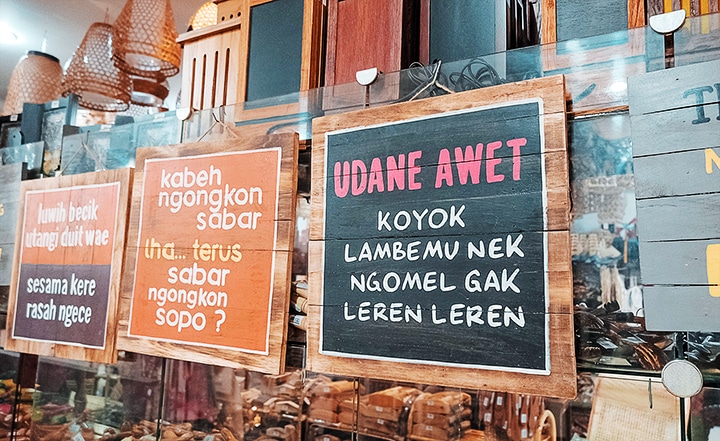 luwih becik
utangi duit wae
sesama kere
rasah ngece
kabeh
ngongkon
sabar
lha... terus
sabar
ngongkon
sopo ?
UDANE AWET
KOYOK
LAMBEMU NEK
NGOMEL GAK
LEREN LEREN